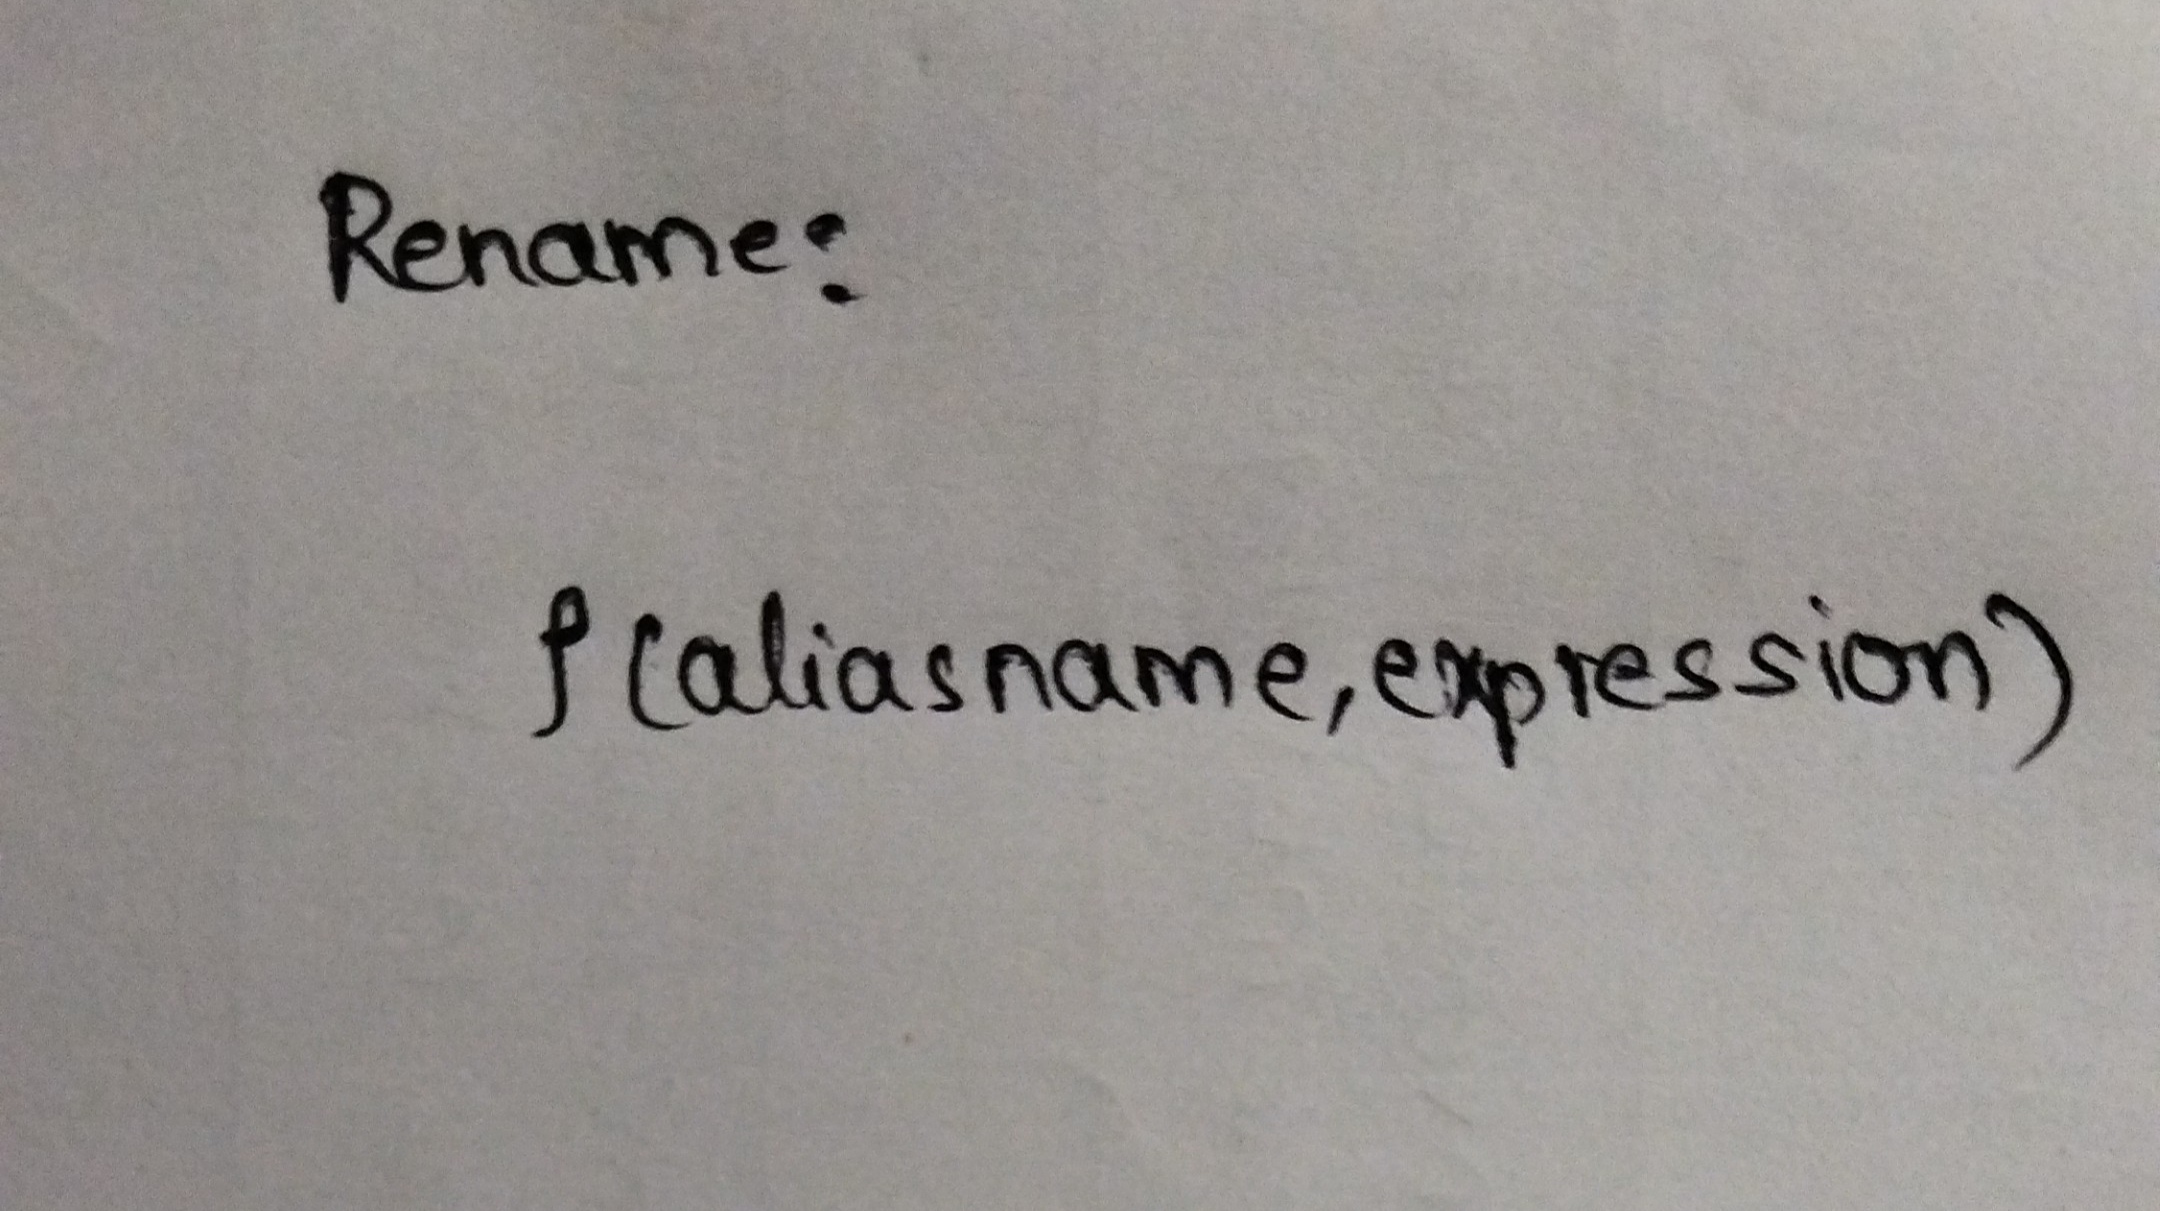 Rename:
ρ(aliasname,expression)